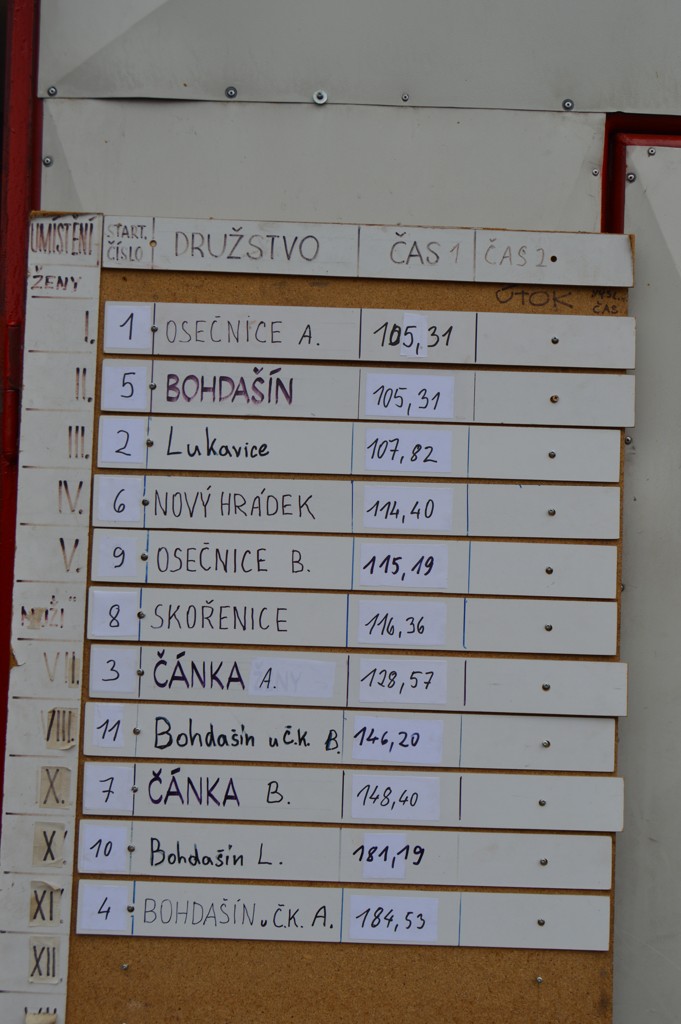 UMÍSTĚNÍ START. ČÍSLO DRUŽSTVO ČAS 1 ČAS 2
ŽENY ÚTOK ČAS
I. 1 OSEČNICE A. 105,31
II. 5 BOHDAŠÍN 105,31
III. 2 Lukavice 107,82
IV. 6 NOVÝ HRÁDEK 114,40
V. 9 OSEČNICE B. 115,19
8 SKOŘENICE 116,36
VII. 3 ČÁNKA A. 128,57
VIII. 11 Bohdašín u Č.K. B. 146,20
X. 7 ČÁNKA B. 148,40
X 10 Bohdašín L. 181,19
XI. 4 BOHDAŠÍN u Č.K. A. 184,53
XII